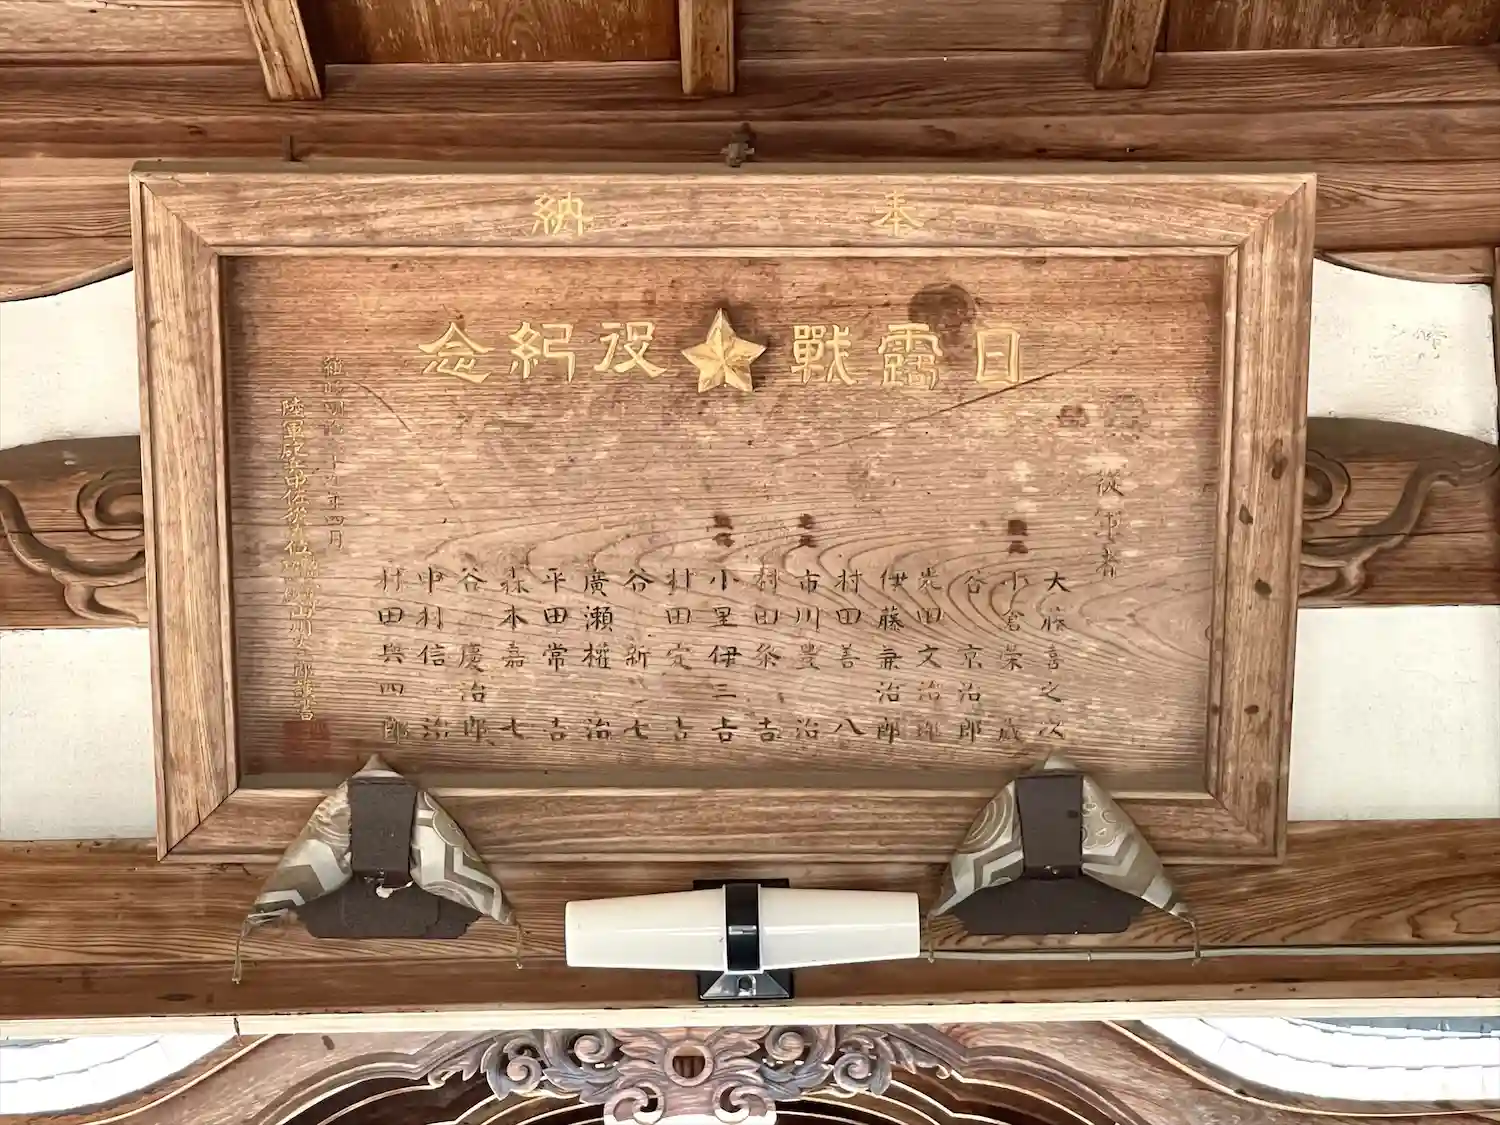 奉納
日露戰★役紀念
從軍者
大藤喜之次
小倉榮藏
谷京治郎
柴田文治郎
伊藤兼治郎
村田善八
市川豊治
村田粂吉
小里伊三吉
村田定吉
谷新七
廣瀬權治
平田常吉
森本嘉七
谷慶治郎
中村信治
村田與四郎
維時明治三十九年四月
陸軍砲兵中佐
謹書